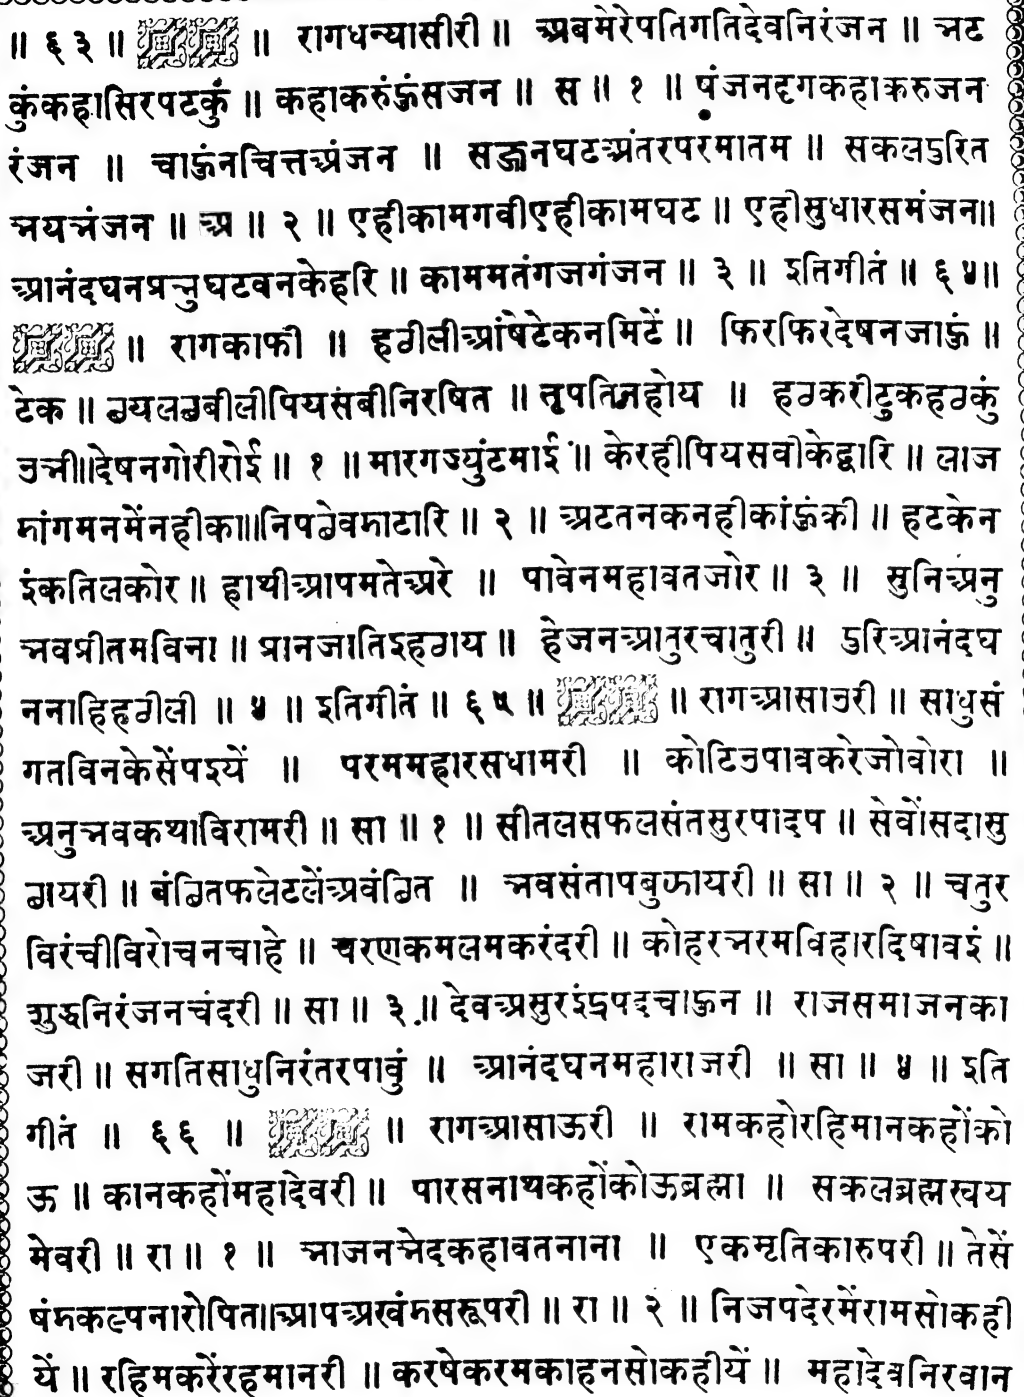 ॥ ६३ ॥ ॥ रागधन्यासीरी ॥ अबमेरेपतिगतिदेवनिरंजन ॥ भट
कुंकहासिरपटकुं ॥ कहाकरुंऊंसजन ॥ स ॥ १ ॥ षंजनदृगकहाकरुजन
रंजन ॥ चाऊंनचित्तअंजन ॥ सऊनघटअंतरपरमातम ॥ सकलऽरित
भयभंजन ॥ अ ॥ २ ॥ एहीकामगवीएहीकामघट ॥ एहीसुधारसमंजन॥
आनंदघनप्रभुघटवनकेहरि ॥ काममतंगजगंजन ॥ ३ ॥ इतिगीतं ॥ ६४॥
॥ रागकाफी ॥ हठीलीआंषेटेकनमिटें ॥ फिरफिरदेषनजाऊं ॥
टेक ॥ छयलछबीलीपियसंबीनिरषित ॥ तृपतिनहोय ॥ हठकरीटुकहठकुं
उभी॥देषनगोरीरोई ॥ १ ॥ मारगज्युंटमाई ॥ केरहीपियसवीकेद्वारि ॥ लाज
मांगमनमेंनहीका॥निपछेवडाटारि ॥ २ ॥ अटतनकनहीकांऊंकी ॥ हटकेन
इंकतिलकोर ॥ हाथीआपमतेअरे ॥ पावेनमहावतजोर ॥ ३ ॥ सुनिअनु
भवप्रीतमविना ॥ प्रानजातिइहठाय ॥ हेजनआतुरचातुरी ॥ ऽरिआनंदघ
ननाहिहठीली ॥ ४ ॥ इतिगीतं ॥ ६५ ॥ ॥ रागआसाउरी ॥ साधुसं
गतविनकेसेंपइयें ॥ परममहारसधामरी ॥ कोटिउपावकरेजोवोरा ॥
अनुभवकथाविरामरी ॥ सा ॥ १ ॥ सीतलसफलसंतसुरपादप ॥ सेवोंसदासु
छायरी ॥ बंछितफलेटलेंअवंछित ॥ भवसंतापबुझायरी ॥ सा ॥ २ ॥ चतुर
विरंचीविरोचनचाहे ॥ चरणकमलमकरंदरी ॥ कोहरभरमविहारदिषावइं ॥
शुद्धनिरंजनचंदरी ॥ सा ॥ ३ ॥ देवअसुरइंद्रपदचाऊन ॥ राजसमाजनका
जरी ॥ सगतिसाधुनिरंतरपावुं ॥ आनंदघनमहाराजरी ॥ सा ॥ ४ ॥ इति
गीतं ॥ ६६ ॥ ॥ रागआसाऊरी ॥ रामकहोरहिमानकहोंको
ऊ ॥ कानकहोंमहादेवरी ॥ पारसनाथकहोंकोऊब्रह्मा ॥ सकलब्रह्मस्वय
मेवरी ॥ रा ॥ १ ॥ भाजनभेदकहावतनाना ॥ एकमृतिकारुपरी ॥ तेसें
षंडकल्पनारोपित॥आपअखंडसरूपरी ॥ रा ॥ २ ॥ निजपदेरमेंरामसोकही
यें ॥ रहिमकरेंरहमानरी ॥ करषेकरमकाहनसोकहीयें ॥ महादेवनिरवान